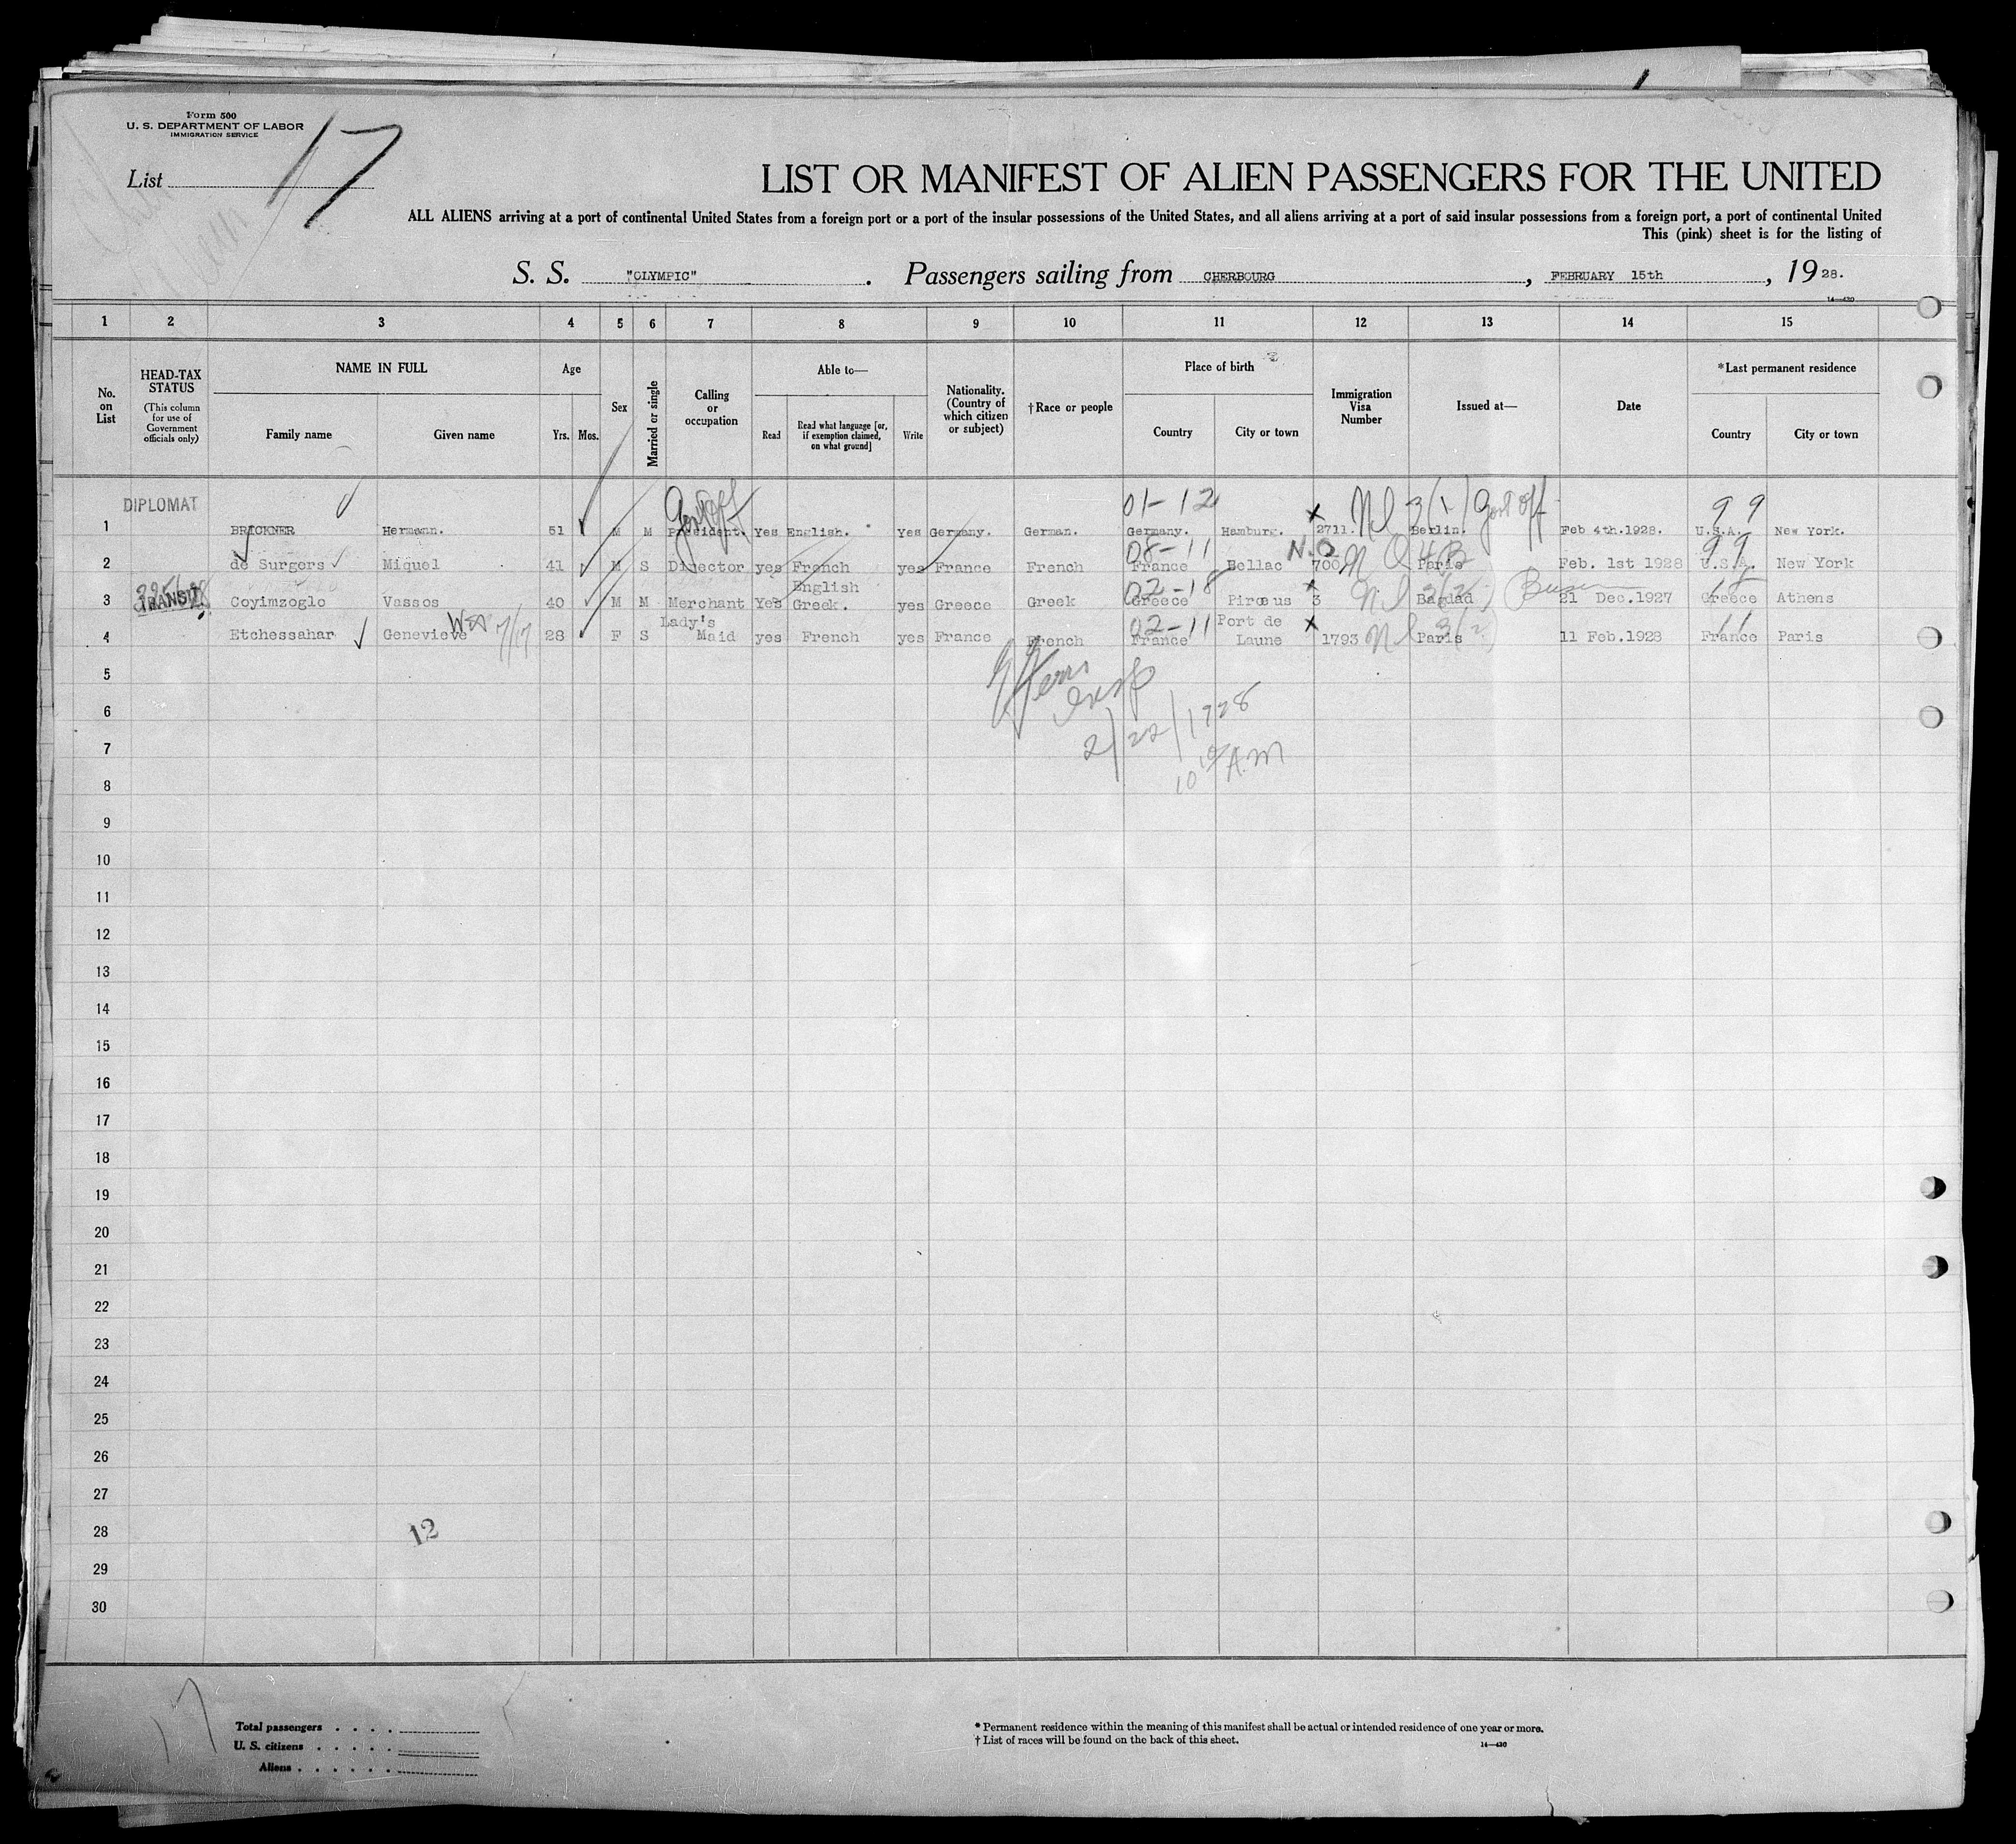 Form 500
U. S. DEPARTMENT OF LABOR
IMMIGRATION SERVICE
List 17
LIST OR MANIFEST OF ALIEN PASSENGERS FOR THE UNITED
ALL ALIENS arriving at a port of continental United States from a foreign port or a port of the insular possessions of the United States, and all aliens arriving at a port of said insular possessions from a foreign port, a port of continental United
This (pink) sheet is for the listing of
S. S. "OLYMPIC" . Passengers sailing from CHERBOURG , FEBRUARY 15th , 1928.
14—430
1 2 3 4 5 6 7 8 9 10 11 12 13 14 15
No. on List
HEAD-TAX STATUS
(This column for use of Government officials only)
NAME IN FULL
Family name Given name
Age
Yrs. Mos.
Sex
Married or single
Calling or occupation
Able to—
Read
Read what language [or, if exemption claimed, on what ground]
Write
Nationality. (Country of which citizen or subject)
†Race or people
Place of birth
Country City or town
Immigration Visa Number
Issued at—
Date
*Last permanent residence
Country City or town
DIPLOMAT Gov't Off 01-12 Nl 3(1) Gov't Off 99
1 BRICKNER Hermann. 51 M M President. Yes English. Yes Germany. German. Germany. Hamburg. 2711. Berlin. Feb 4th.1928. U.S.A. New York.
08-11 N.Q 99
2 de Surgers Miquel 41 M S Director yes French yes France French France Bellac 700 N Q 4B Paris Feb. 1st 1928 U.S.A. New York
English 02-18
3 TRANSIT Coyimzoglo Vassos 40 M M Merchant Yes Greek. yes Greece Greek Greece Piræus 3 Bagdad 21 Dec.1927 Greece Athens
Lady's 02-11 Port de 11
4 Etchessahar Genevieve 28 F S Maid yes French yes France French France Laune 1793 Nl 3(2) Paris 11 Feb.1928 France Paris
5
6
2/22/1928
7
10 A.M
8
9
10
11
12
13
14
15
16
17
18
19
20
21
22
23
24
25
26
27
28 12
29
30
17
Total passengers . . . .
U. S. citizens . . . . .
Aliens . . . . . .
* Permanent residence within the meaning of this manifest shall be actual or intended residence of one year or more.
† List of races will be found on the back of this sheet.
14—430